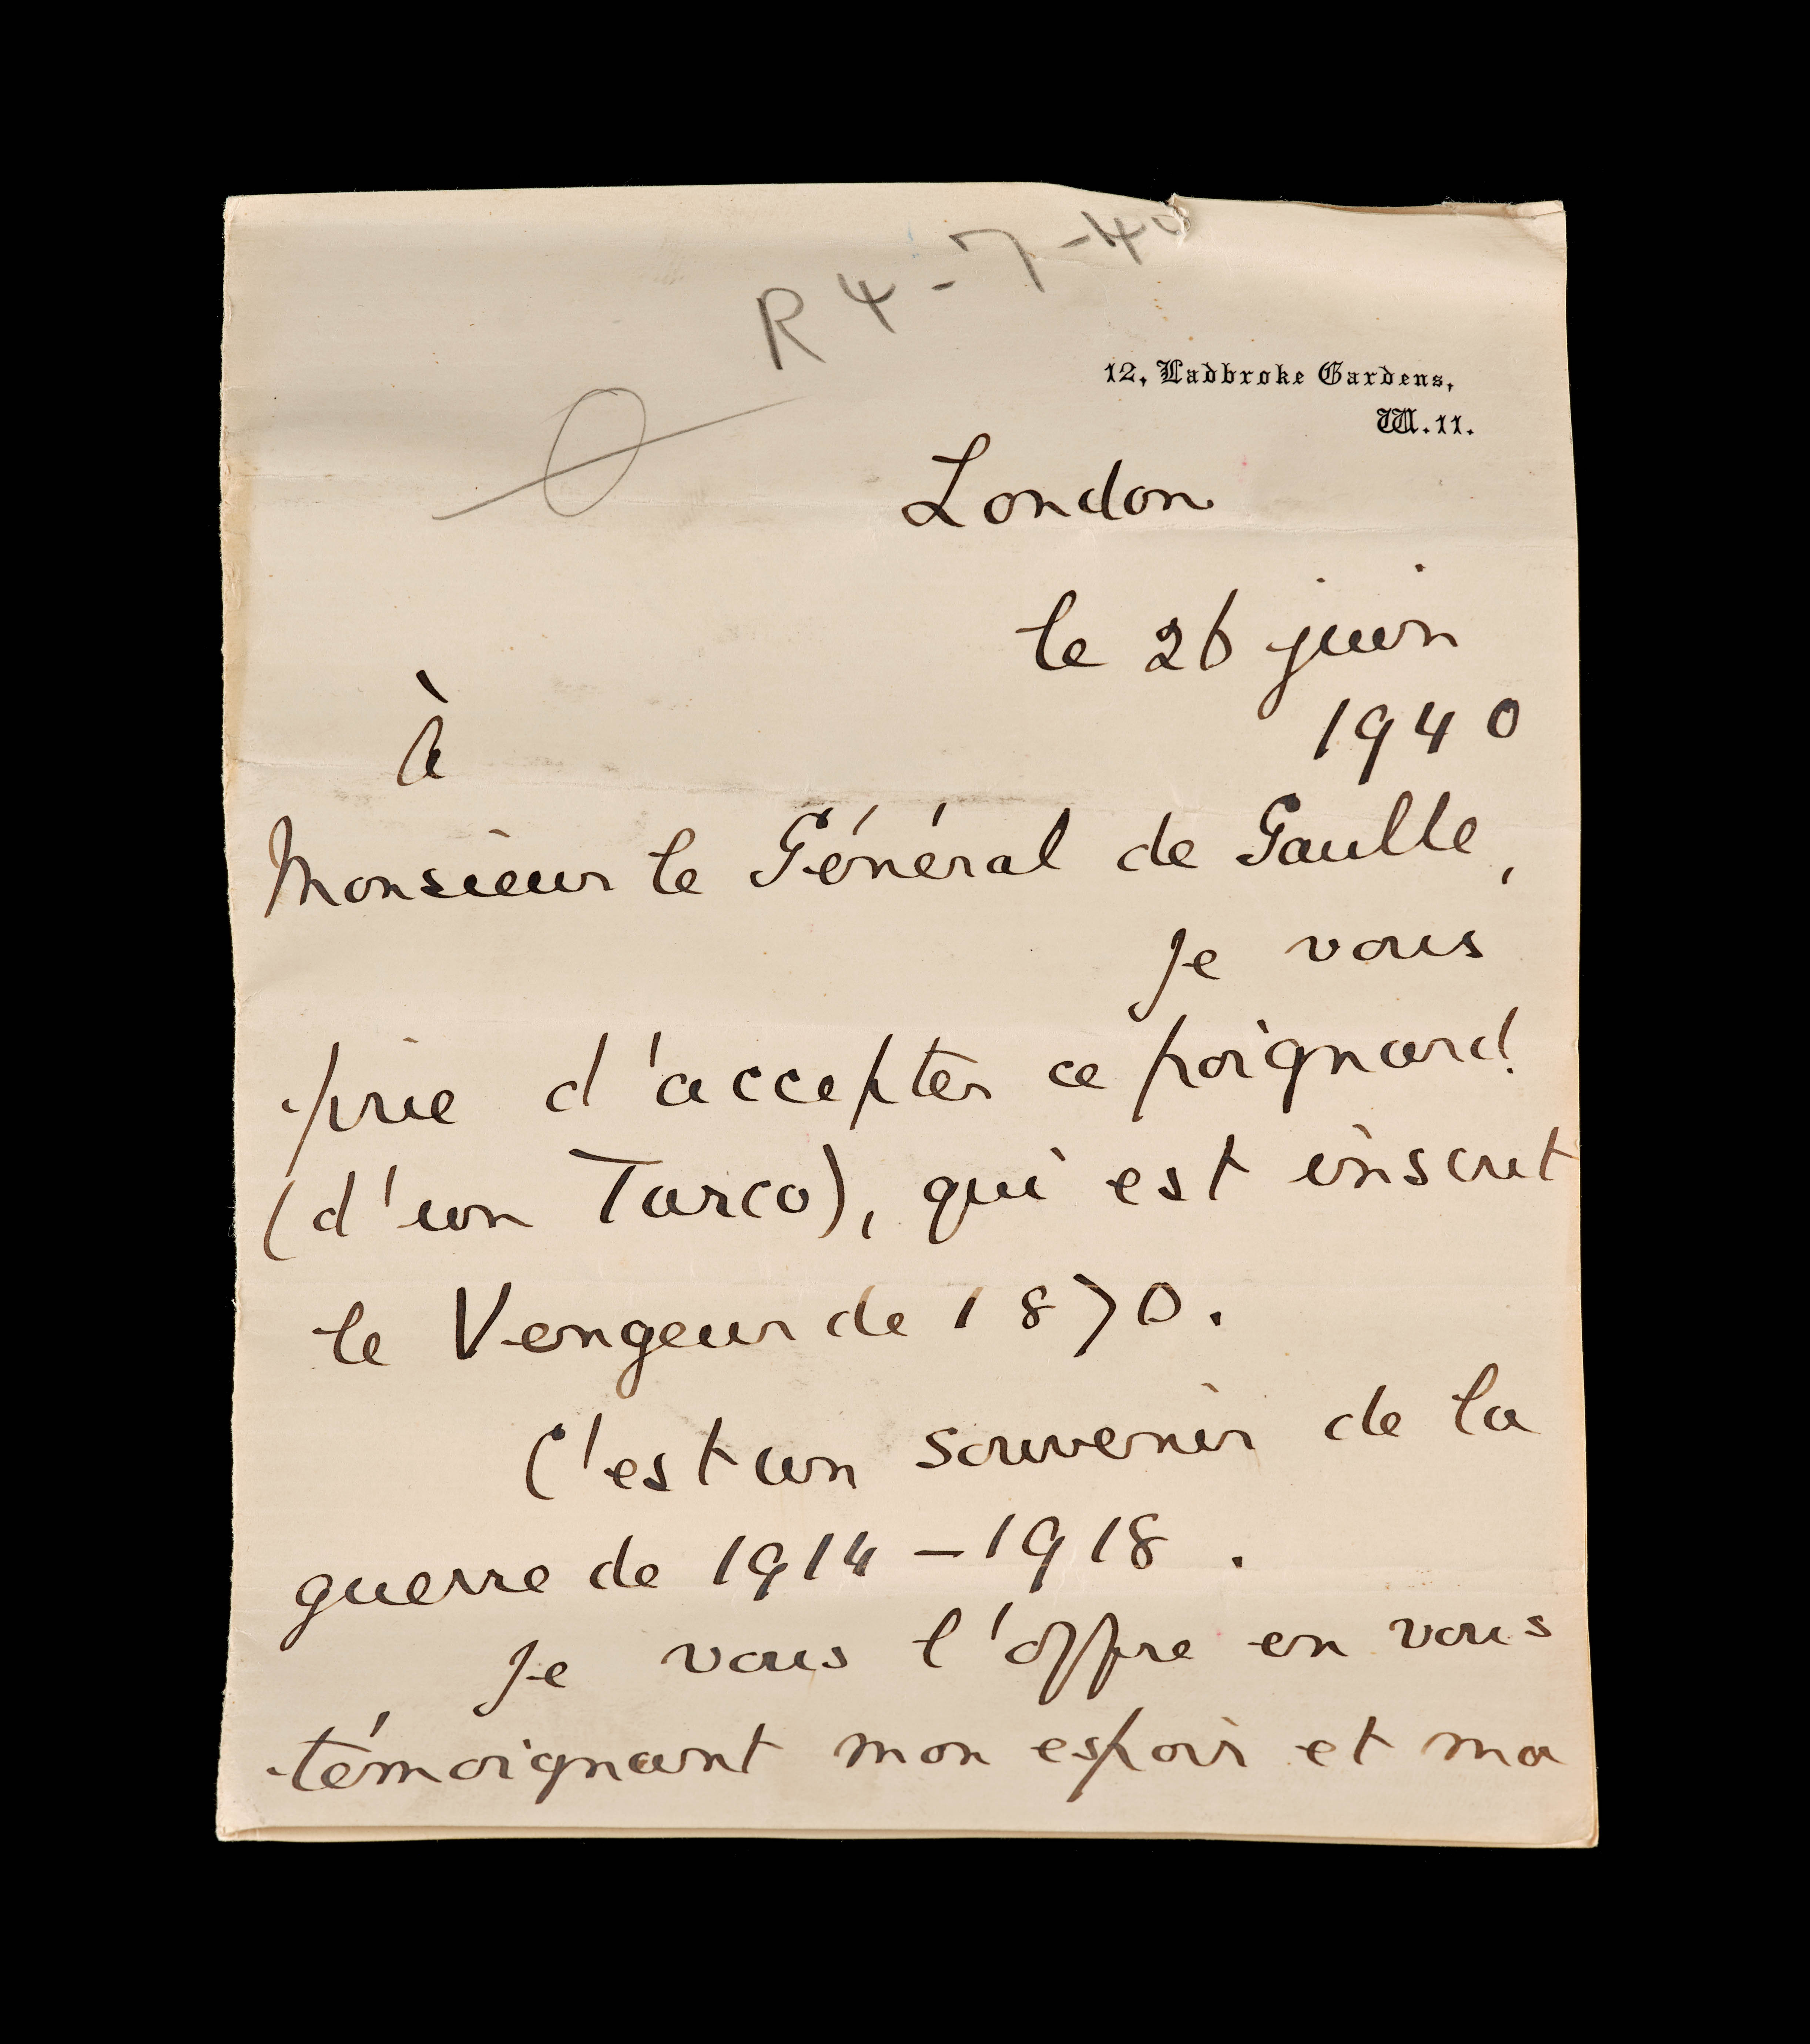 R 4-7-40
12, Ladbroke Gardens,
W.11.
London
le 26 juin
1940
à
Monsieur le Général de Gaulle,
Je vous
prie d'accepter ce poignard
(d'un Turco), qui est inscrit
le Vengeur de 1870.
C'est un souvenir de la
guerre de 1914-1918.
Je vous l'offre en vous
témoignant mon espoir et ma